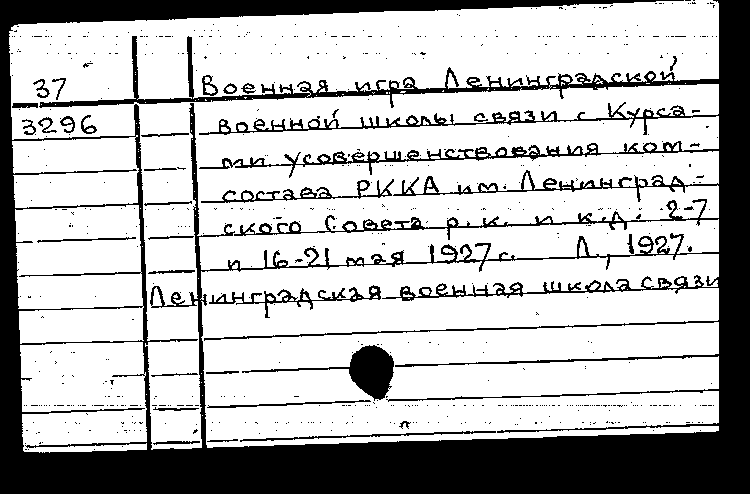 37 Военная игра Ленинградской
3296 военной школы связи с Курса-
ми усовершенствования ком-
состава РККА им. Ленинград-
ского Совета р.к. и к.д. 2-7
и 16-21 мая 1927 г. Л., 1927.
Ленинградская военная школа связи